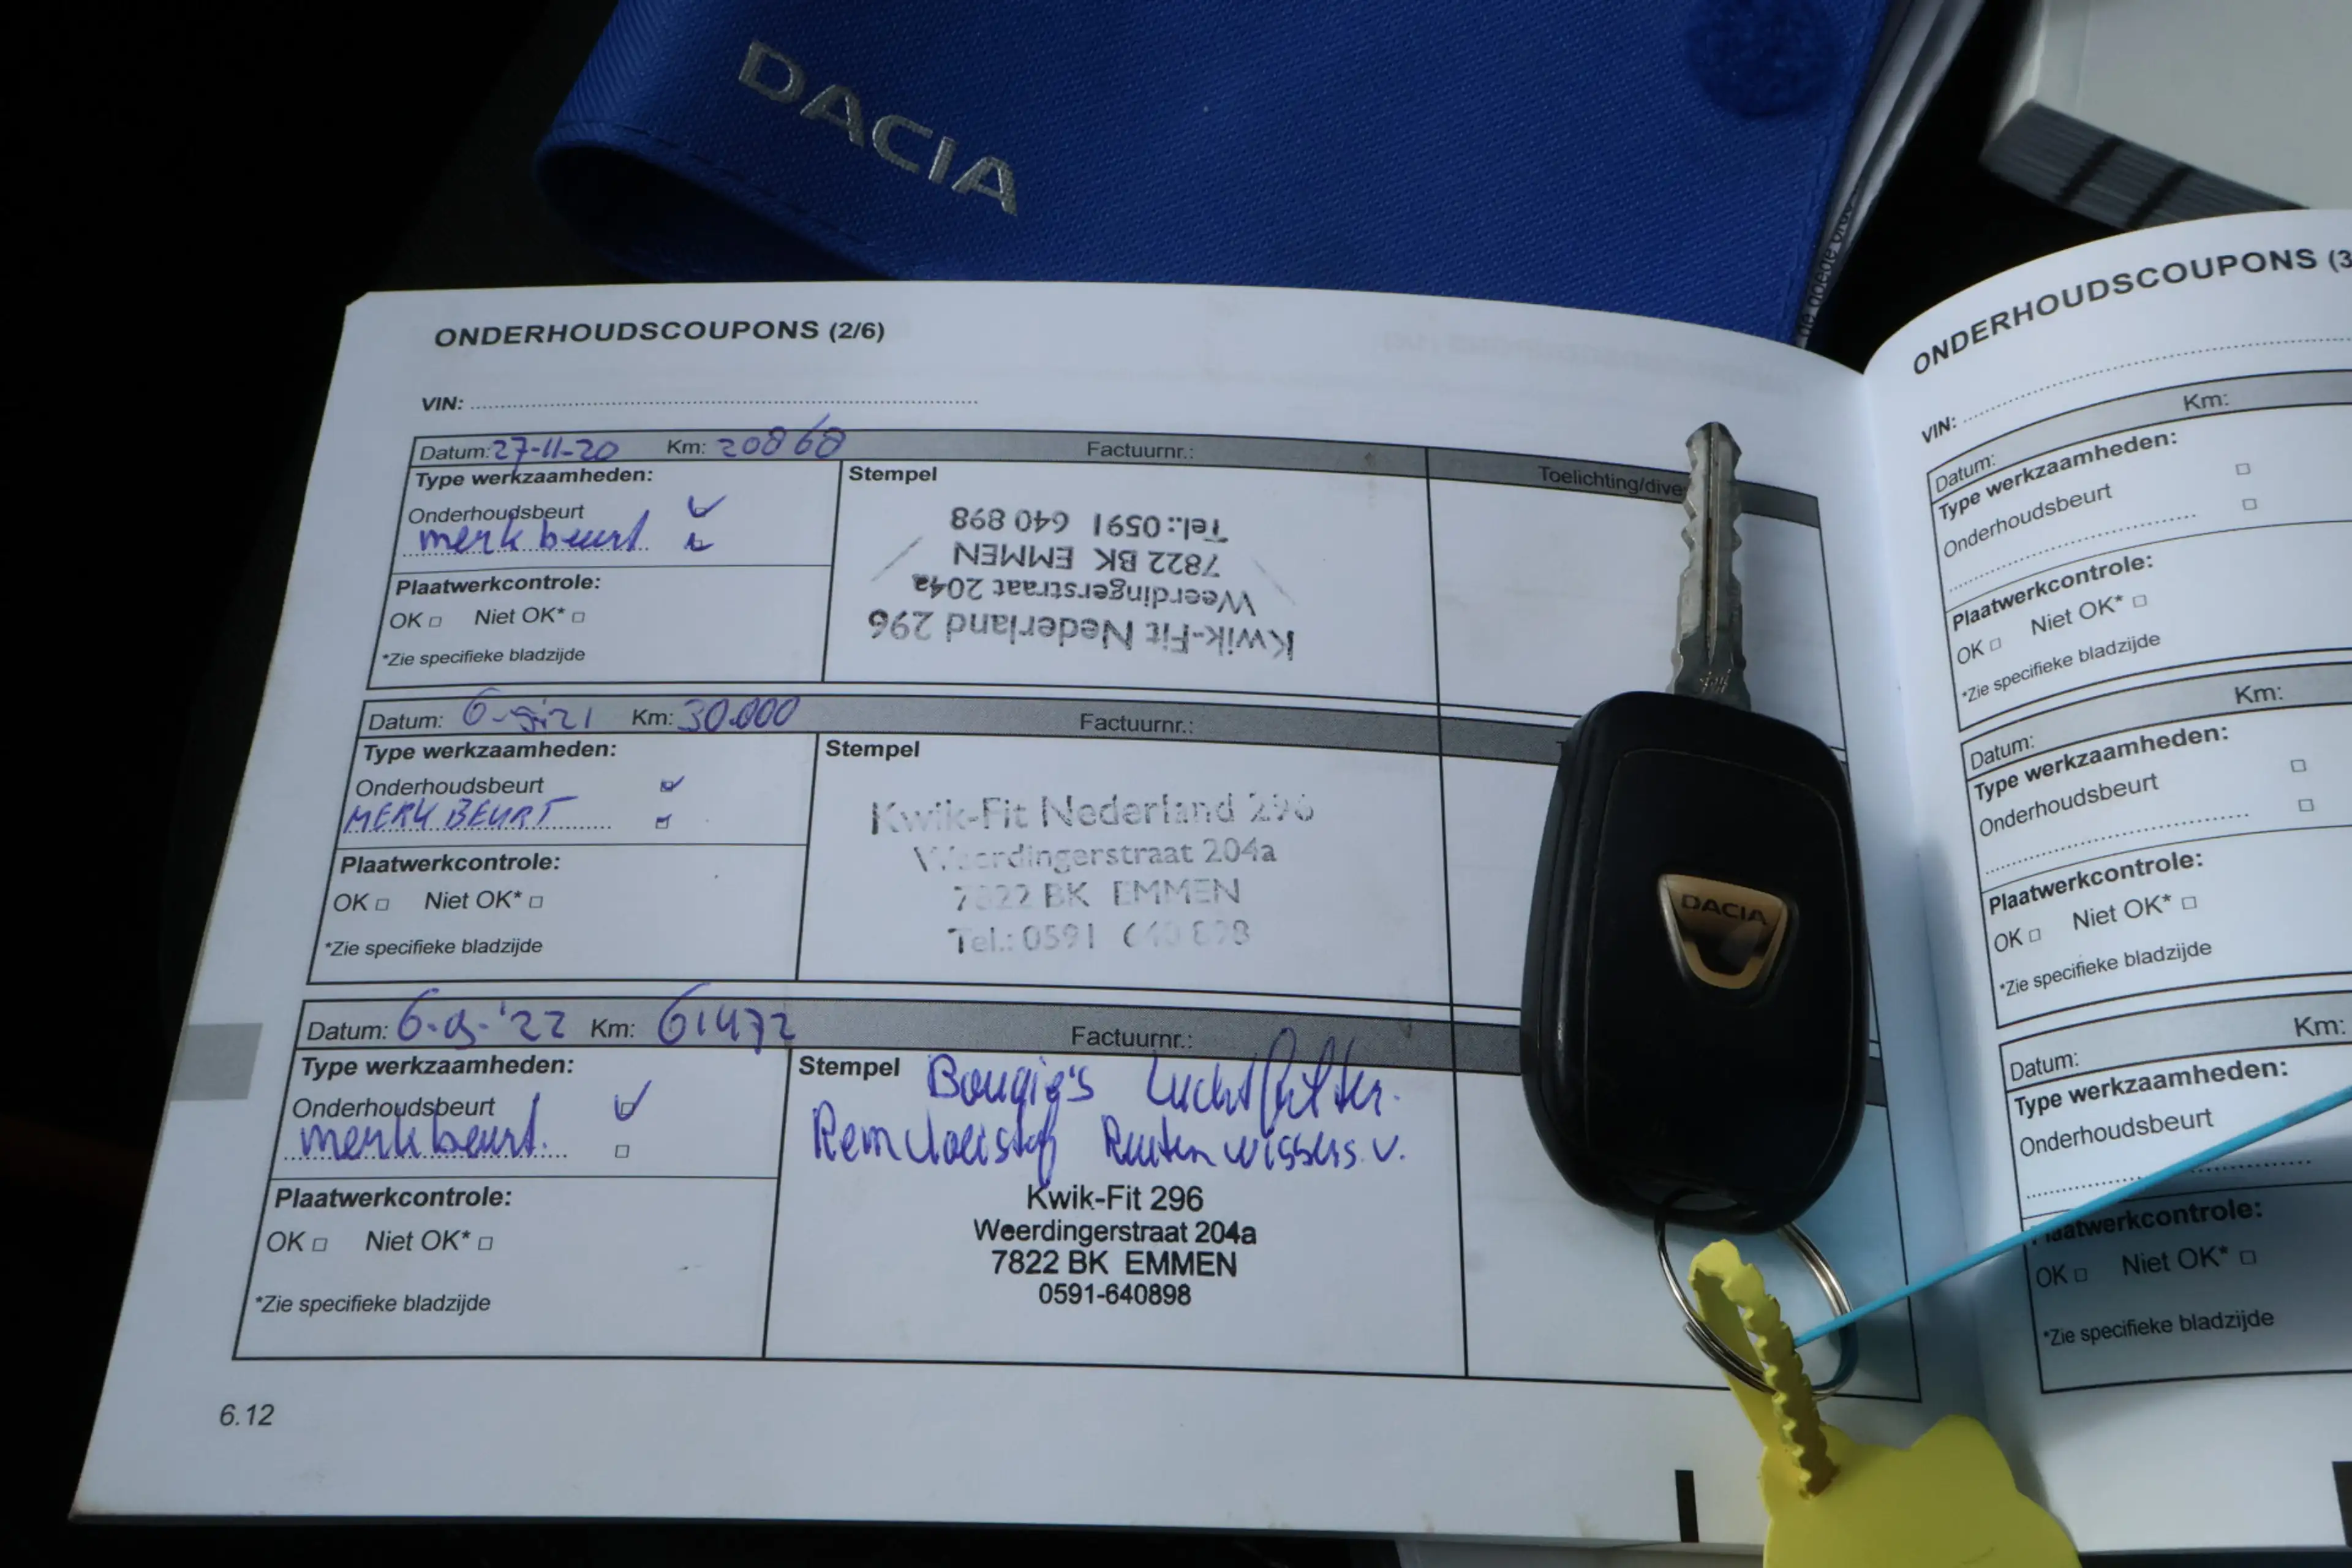 DACIA
ONDERHOUDSCOUPONS (2/6)
VIN:
Datum: 27-11-20 Km: 20868 Factuurnr.:
Type werkzaamheden:
Onderhoudsbeurt
merk beurt
Stempel
Toelichting/dive
Kwik-Fit Nederland 296
Weerdingerstraat 204a
7822 BK EMMEN
Tel.: 0591 640 898
Plaatwerkcontrole:
OK Niet OK*
*Zie specifieke bladzijde
Datum: Km: 30.000 Factuurnr.:
Type werkzaamheden:
Onderhoudsbeurt
MERK BEURT
Stempel
Kwik-Fit Nederland 296
Weerdingerstraat 204a
7822 BK EMMEN
Tel.: 0591 640 898
Plaatwerkcontrole:
OK Niet OK*
*Zie specifieke bladzijde
Datum: Km: 61472 Factuurnr.:
Type werkzaamheden:
Onderhoudsbeurt
merkbeurt.
Stempel
Bougie's Luchtfilter.
Remvloeistof Ruitenwissers v.
Kwik-Fit 296
Weerdingerstraat 204a
7822 BK EMMEN
0591-640898
Plaatwerkcontrole:
OK Niet OK*
*Zie specifieke bladzijde
6.12
DACIA
ONDERHOUDSCOUPONS (3
VIN:
Datum: Km:
Type werkzaamheden:
Onderhoudsbeurt
Plaatwerkcontrole:
OK Niet OK*
*Zie specifieke bladzijde
Datum: Km:
Type werkzaamheden:
Onderhoudsbeurt
Plaatwerkcontrole:
OK Niet OK*
*Zie specifieke bladzijde
Datum: Km:
Type werkzaamheden:
Onderhoudsbeurt
Plaatwerkcontrole:
OK Niet OK*
*Zie specifieke bladzijde